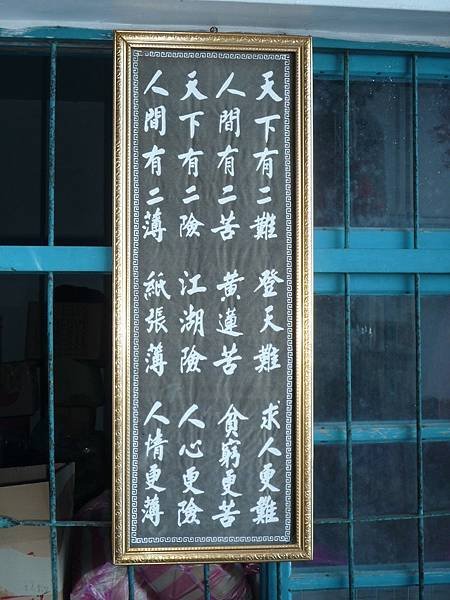 天下有二難 登天難 求人更難
人間有二苦 黃蓮苦 貧窮更苦
天下有二險 江湖險 人心更險
人間有二薄 紙張薄 人情更薄